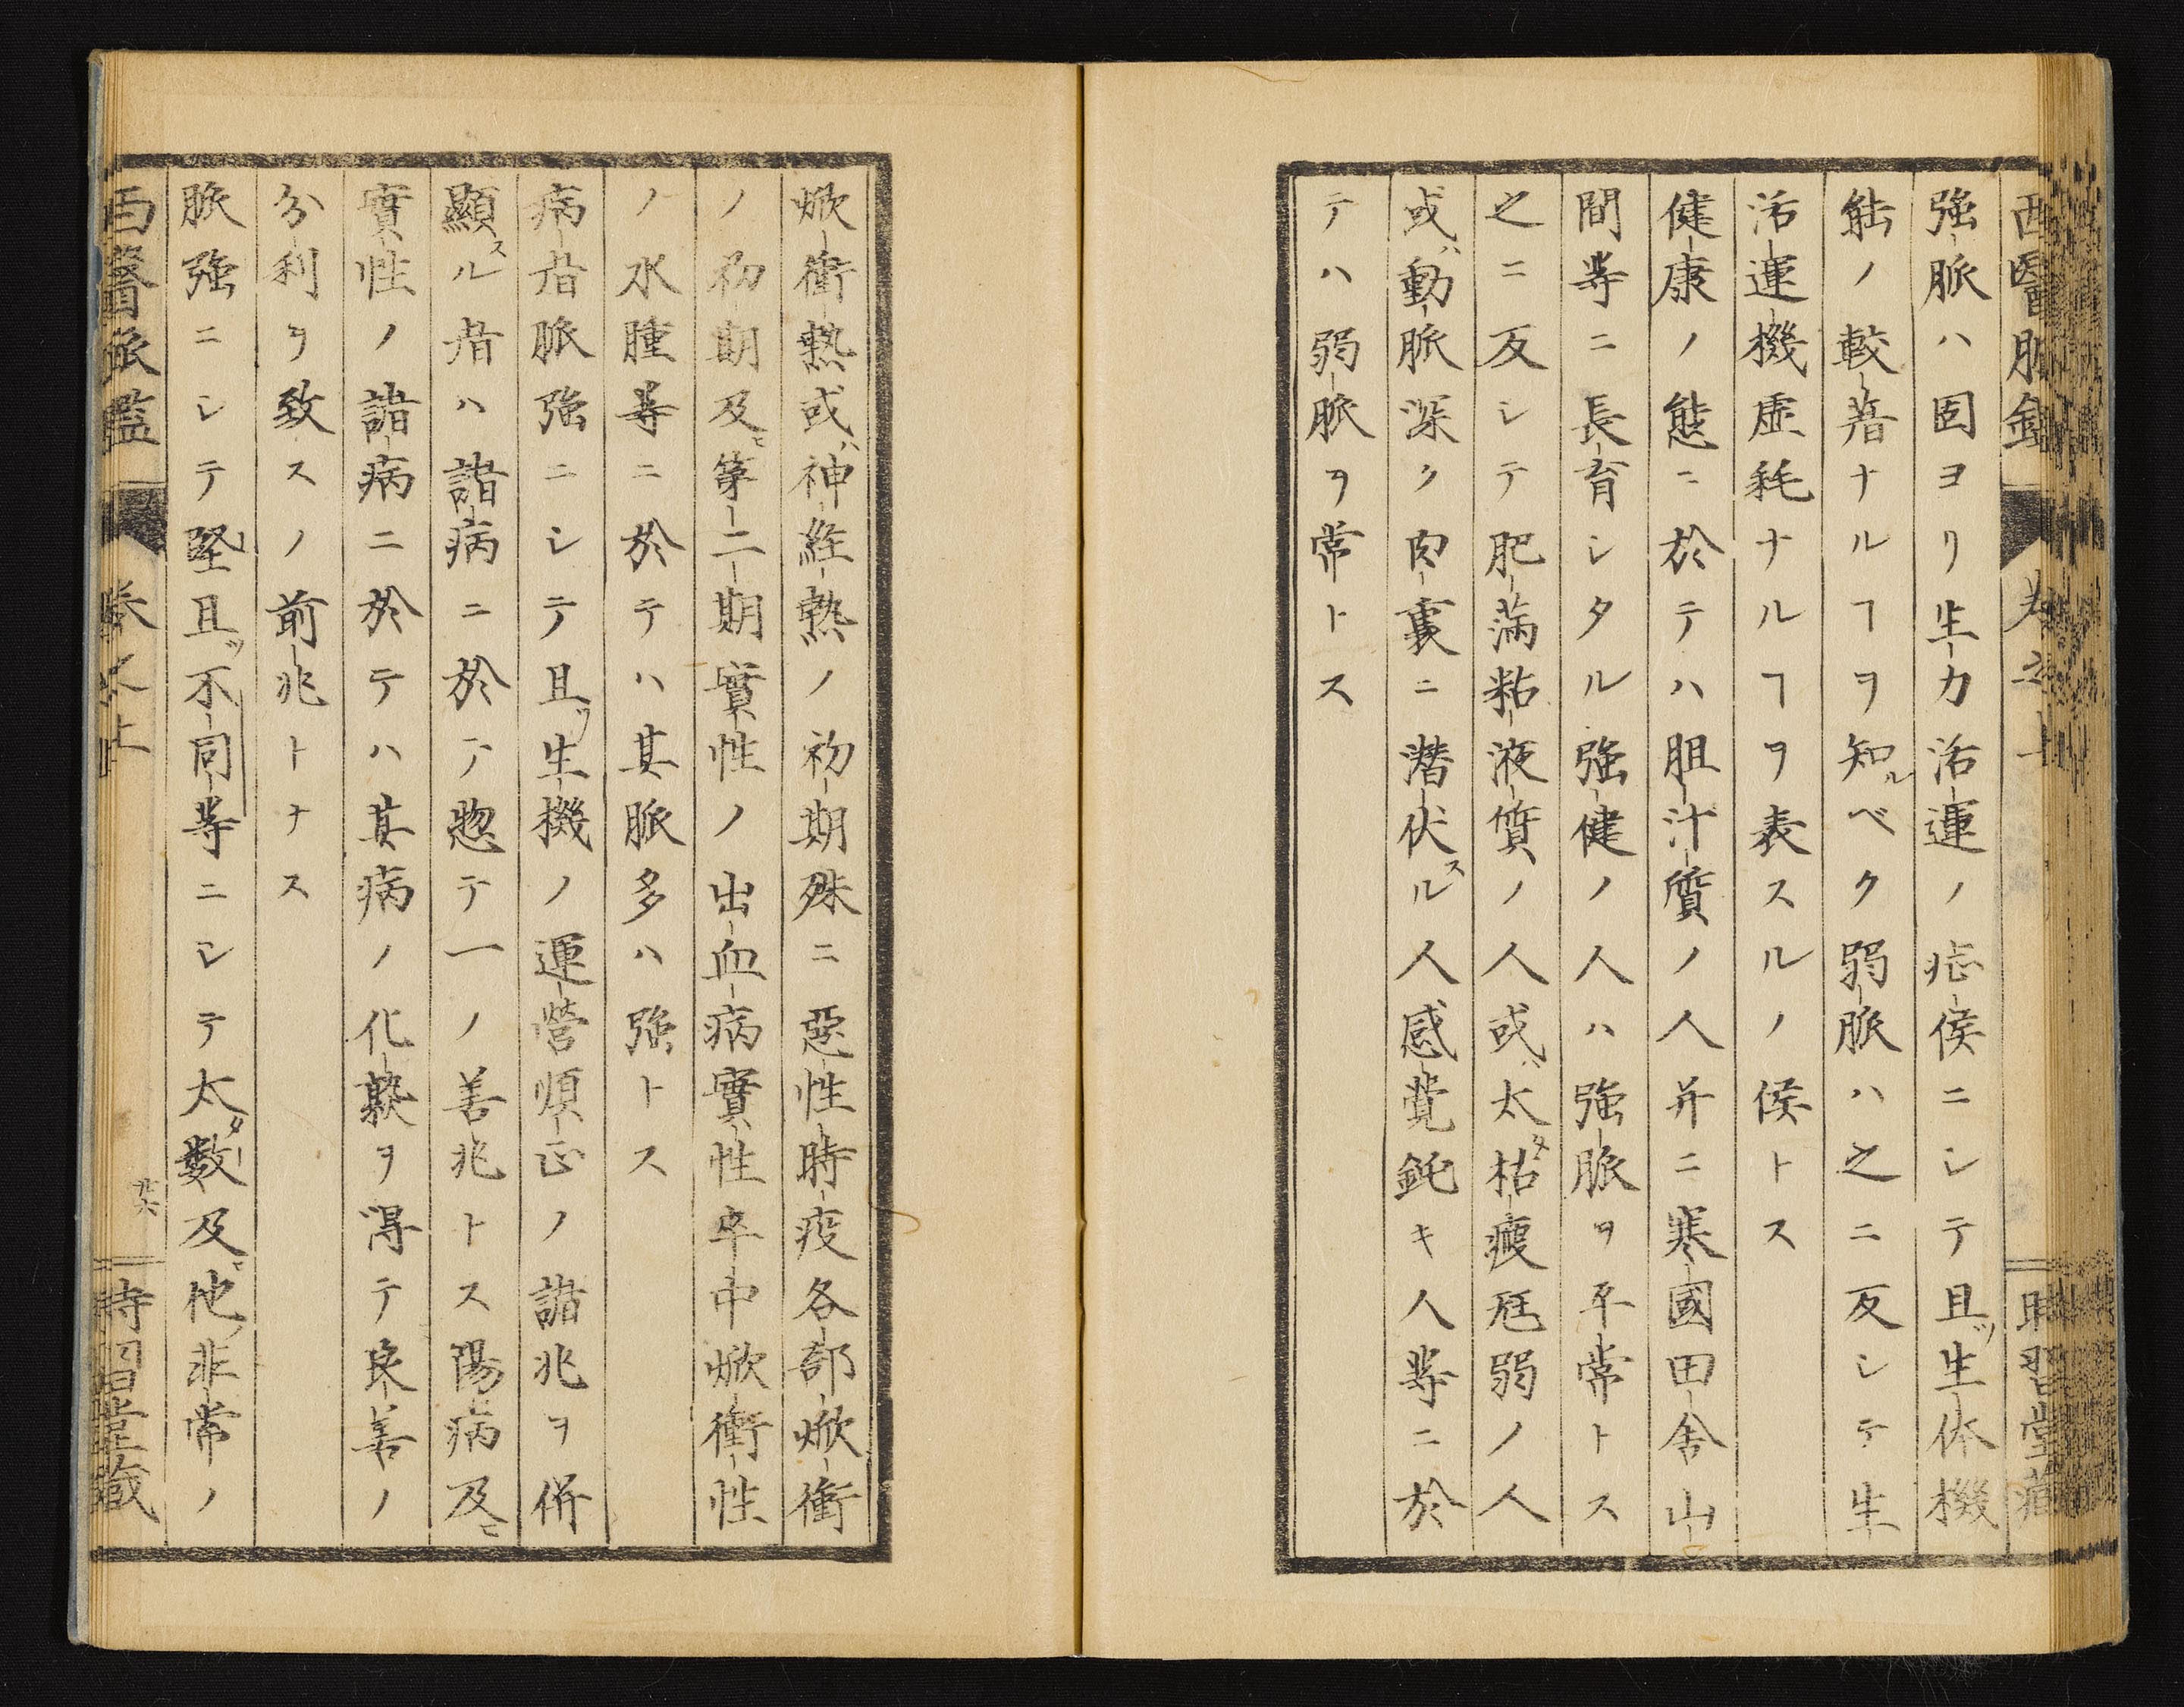 西醫脈鑑 卷之上 時習堂藏
強脈ハ固ヨリ生力活運ノ症候ニシテ且ツ生体機
能ノ較著ナルヿヲ知ルベク弱脈ハ之ニ反シテ生
活運機虚耗ナルヿヲ表スルノ候トス
健康ノ態ニ於テハ胆汁質ノ人并ニ寒國田舎山
間等ニ長育シタル強健ノ人ハ強脈ヲ平常トス
之ニ反シテ肥満粘液質ノ人或ハ太タ枯瘦尫弱ノ人
或ハ動脈深ク肉裏ニ潜伏スル人感覺鈍キ人等ニ於
テハ弱脈ヲ常トス
焮衝熱或ハ神経熱ノ初期殊ニ惡性時疫各部焮衝
ノ初期及ヒ第二期實性ノ出血病實性卒中焮衝性
ノ水腫等ニ於テハ其脈多ハ強トス
病者脈強ニシテ且ツ生機ノ運營順正ノ諸兆ヲ併
顯スル者ハ諸病ニ於テ惣テ一ノ善兆トス陽病及ヒ
實性ノ諸病ニ於テハ其病ノ化熟ヲ得テ良善ノ
分利ヲ致スノ前兆トナス
脈強ニシテ堅且ツ不同等ニシテ太タ数及ヒ他ノ非常ノ
西醫脈鑑 卷之上 廿六 時習堂藏